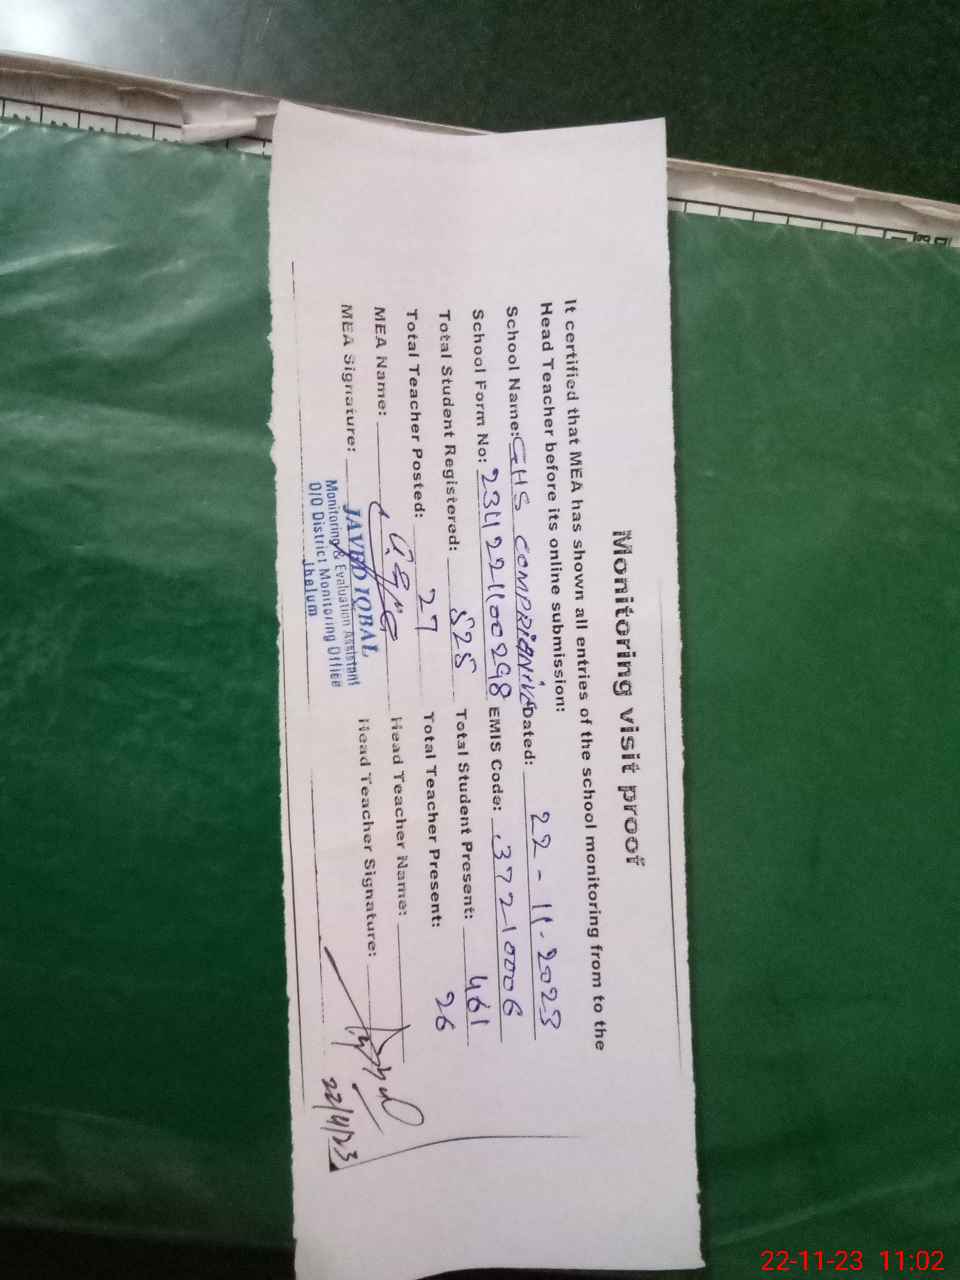 Monitoring visit proof
It certified that MEA has shown all entries of the school monitoring from to the
Head Teacher before its online submission:
School Name: GHS COMPRIÉNIVE Dated: 22-11-2023
School Form No: 234221100298 EMIS Code: 37210006
Total Student Registered: 525 Total Student Present: 461
Total Teacher Posted: 27 Total Teacher Present: 26
MEA Name: Head Teacher Name:
MEA Signature: Head Teacher Signature:
JAVED IQBAL
Monitoring & Evaluation Assistant
O/O District Monitoring Office
Jhelum
22/11/23
22-11-23 11:02